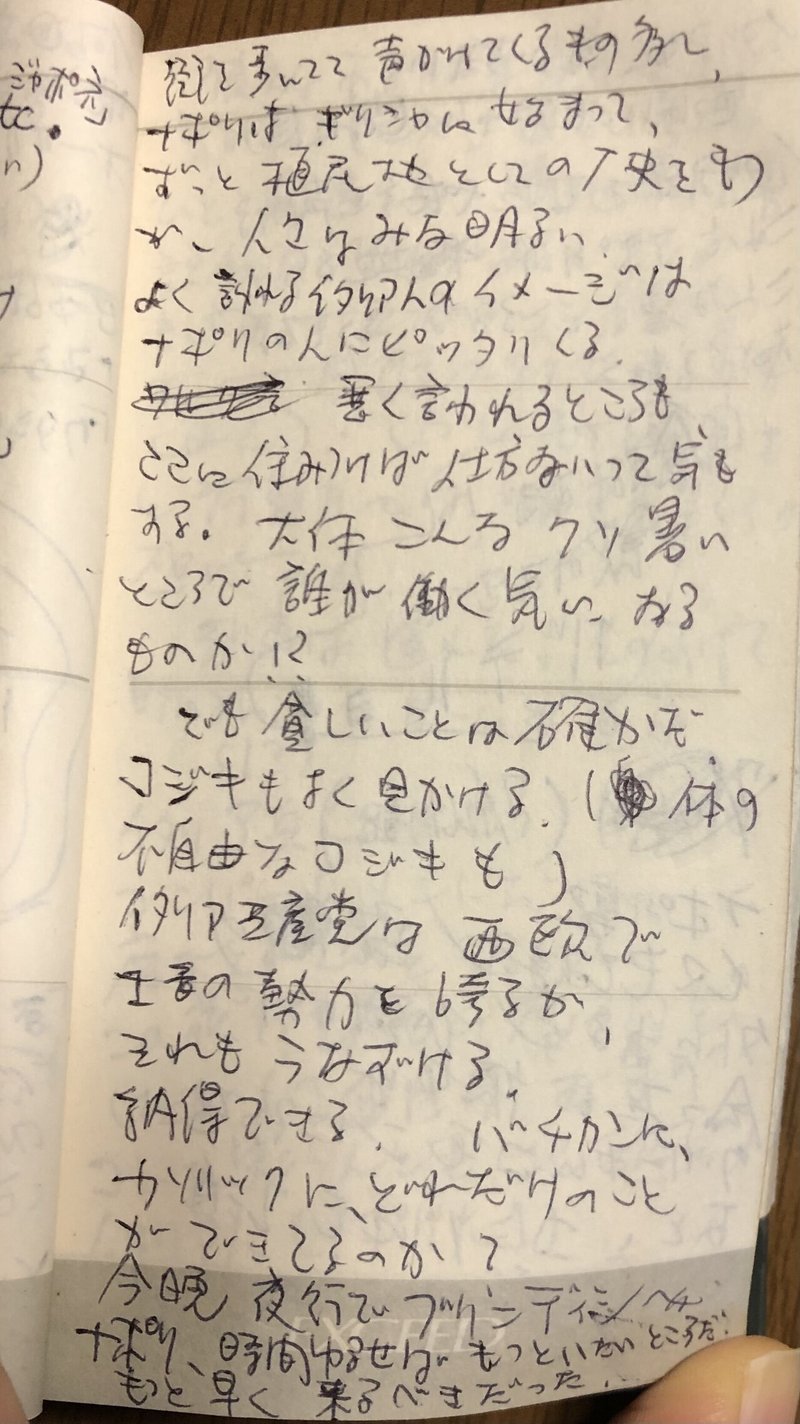 ジャポネ
tc.
n)
街を歩いてて 声かけてくるもの多し、
ナポリは ギリシャに 始まって、
ずっと 植民地 としての 歴史をもつ
が、人々はみな明るい
よく 言われる イタリア人の イメージは
ナポリの人にピッタリくる.
悪く言われるところも
ここに 住みつけば 仕方ないって 気も
する。 大体 こんな クソ 暑い
ところで 誰が 働く 気に なる
ものか!?
でも 貧しいことは 確かだ
コジキもよく見かける. ( 体の
不自由なコジキも )
イタリア共産党は 西欧で
主要の 勢力を 誇るが,
それも うなずける.
納得できる. バチカンに、
カソリックに、どれだけのこと
ができてるのか?
今晩 夜行で ブリンディシへ
ナポリ、時間ゆるせば もっといたい ところだ.
もっと 早く 来るべきだった...
EXCEED